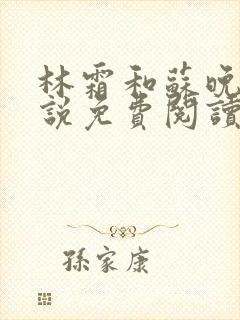 林霜和蘇晚
說免費閱讀
孫家康